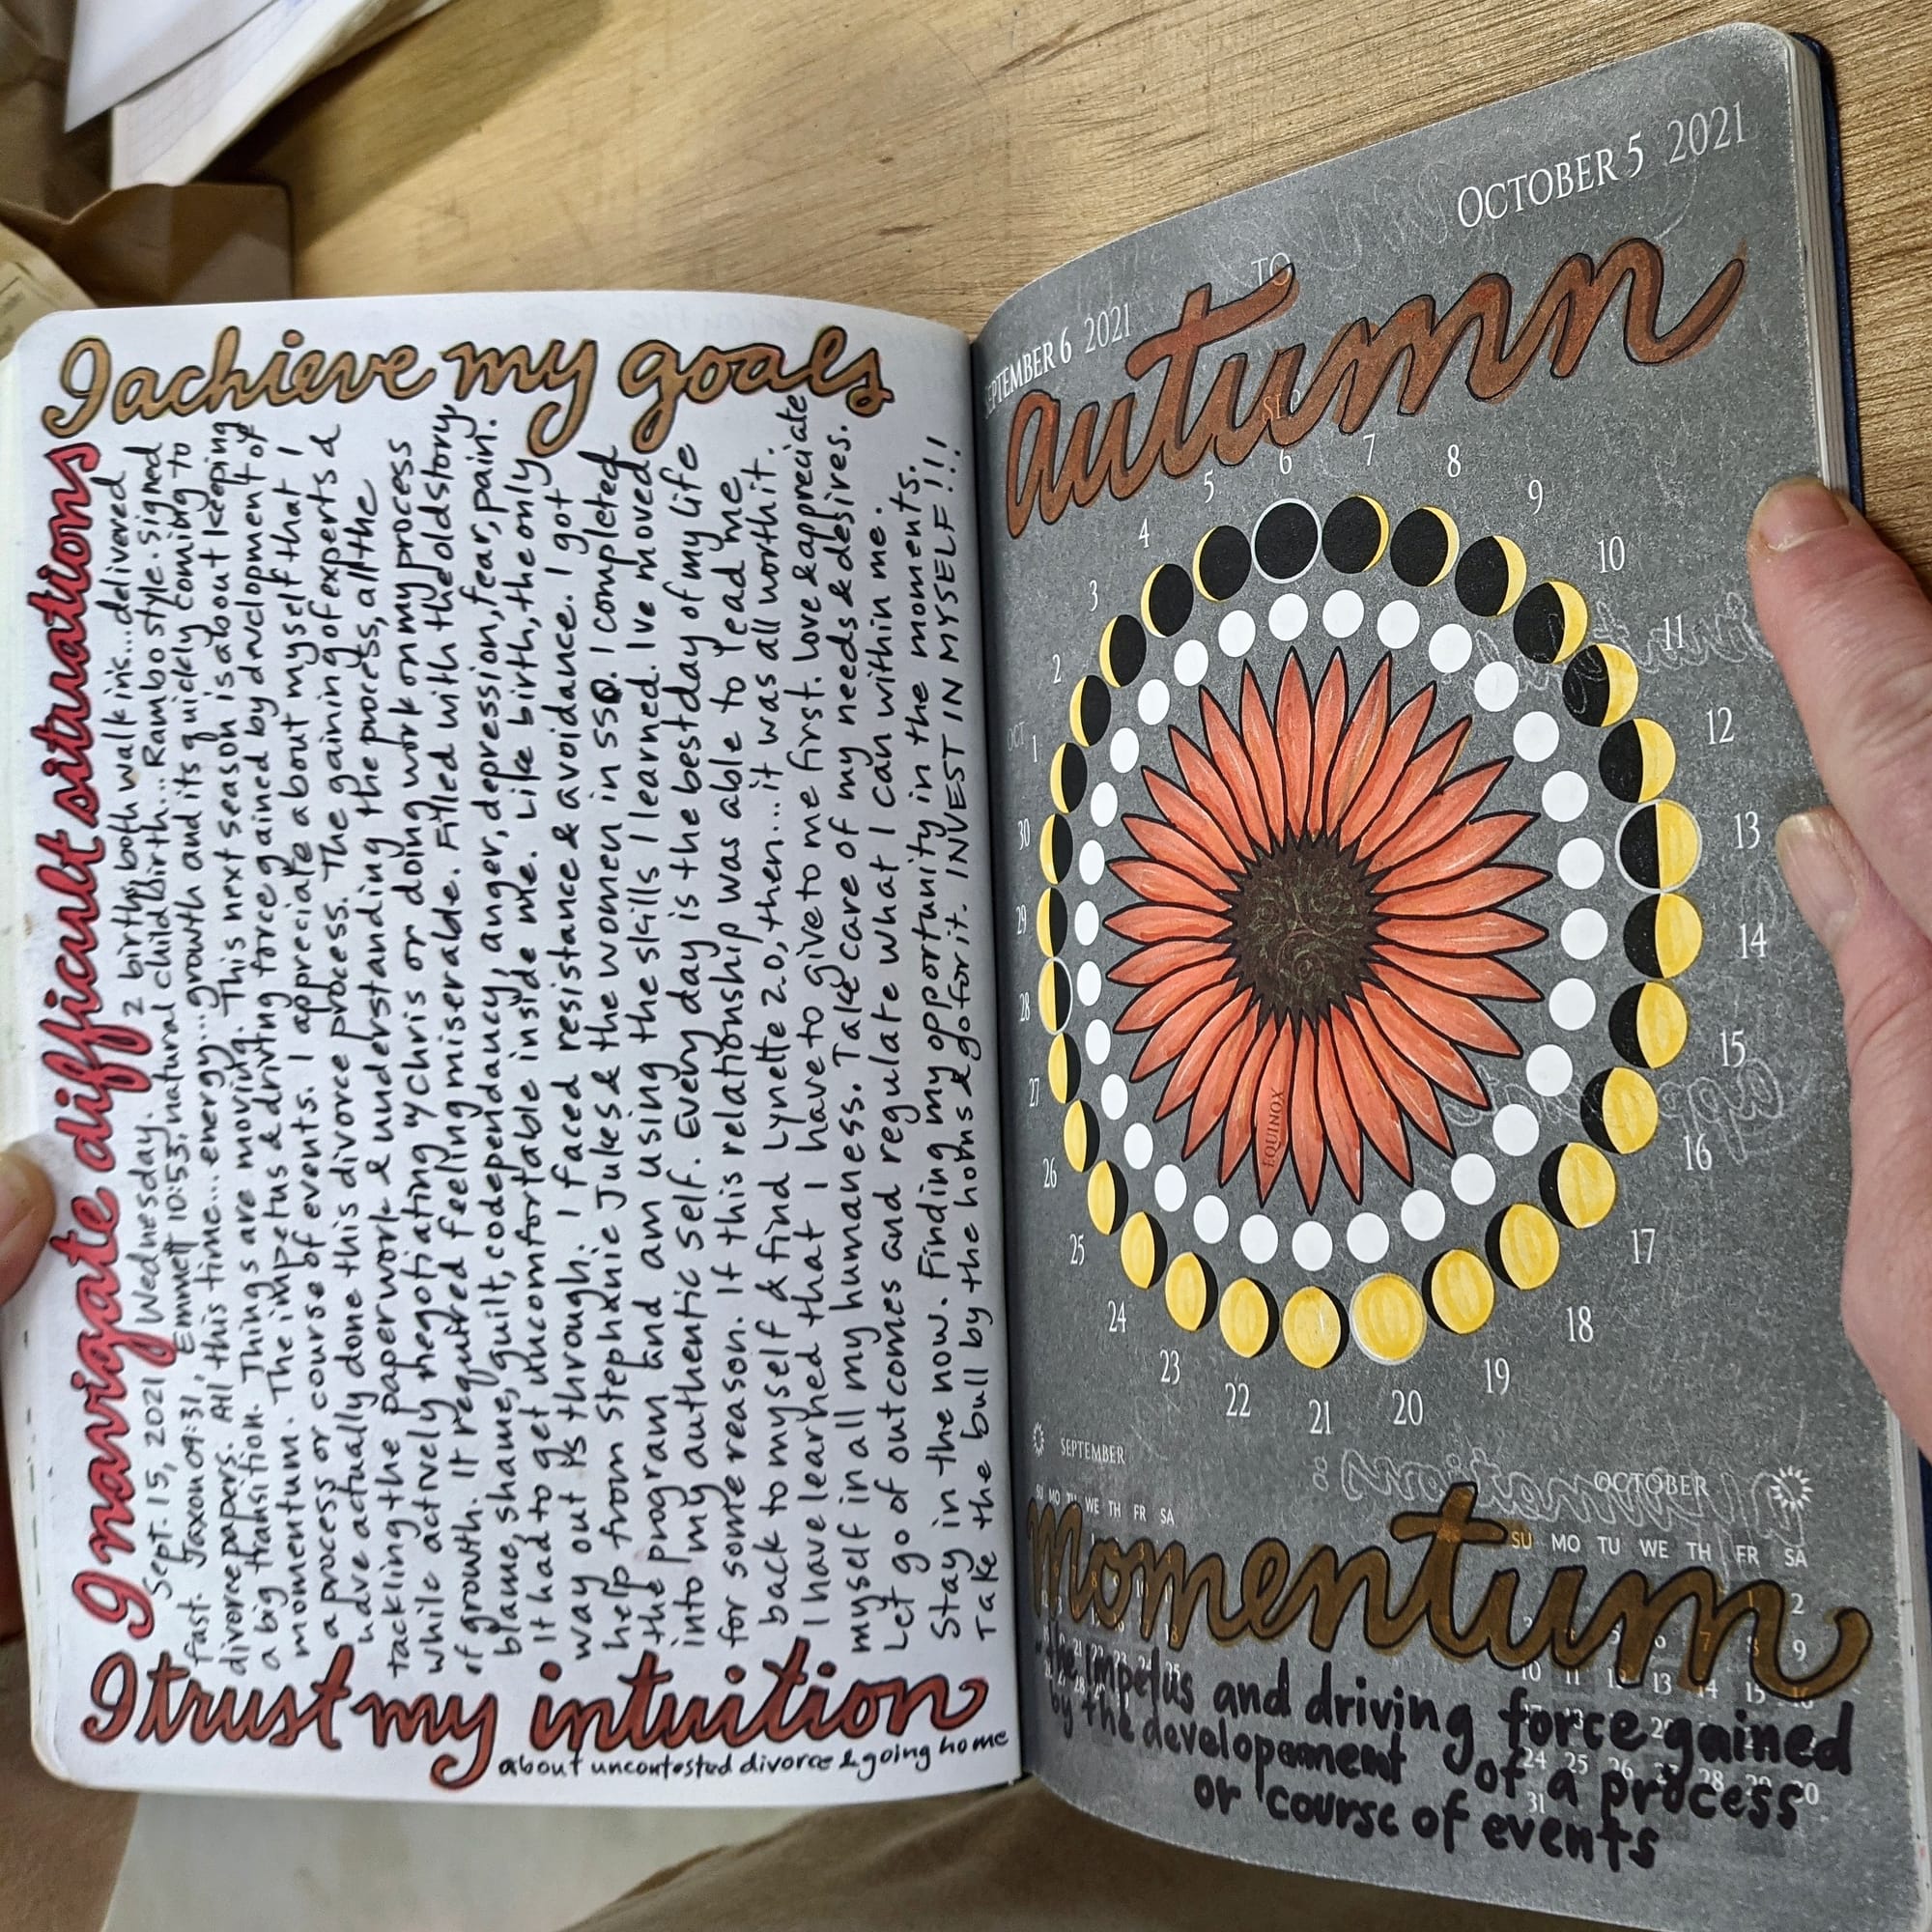 I achieve my goals
I navigate difficult situations
Sept. 15, 2021 Wednesday. 2 births, both walk in's...delivered
fast. Jaxson 09:31, Emmett 10:53, natural childbirth... Rambo style. signed
divorce papers. All this time... energy...growth and its quickly coming to
a big transition. Things are moving. This next season is about keeping
momentum. The impetus & driving force gained by development of
a process or course of events. I appreciate about myself that I
have actually done this divorce process. The gaining of experts &
tackling the paperwork & understanding the process, all the
while actively negotiating w/ Chris or doing work on my process
of growth. It required feeling miserable. Filled with the old story
blame, shame, guilt, codependancy, anger, depression, fear, pain.
It had to get uncomfortable inside me. Like birth, the only
way out is through. I faced resistance & avoidance. I got
help from Stephanie Jukes & the women in SSO. I completed
the program and am using the skills I learned. I've moved
into my authentic self. Every day is the best day of my life
for some reason. If this relationship was able to lead me
back to myself & find Lynette 2.0, then...it was all worth it.
I have learned that I have to give to me first. Love & appreciate
myself in all my humanness. Take care of my needs & desires.
Let go of outcomes and regulate what I can within me.
Stay in the now. Finding my opportunity in the moments.
Take the bull by the horns & go for it. INVEST IN MYSELF!!!
I trust my intuition
about uncontested divorce & going home
SEPTEMBER 6 2021
TO
OCTOBER 5 2021
autumn
SEP
6
7
8
9
10
11
12
13
14
15
16
17
18
19
20
21
22
23
24
25
26
27
28
29
30
OCT
1
2
3
4
5
EQUINOX
SEPTEMBER
SU MO TU WE TH FR SA
OCTOBER
SU MO TU WE TH FR SA
2
9
10 11 12 13 14 15 16
24 25 26 27 28 29 30
31
momentum
the impetus and driving force gained
by the developement of a process
or course of events